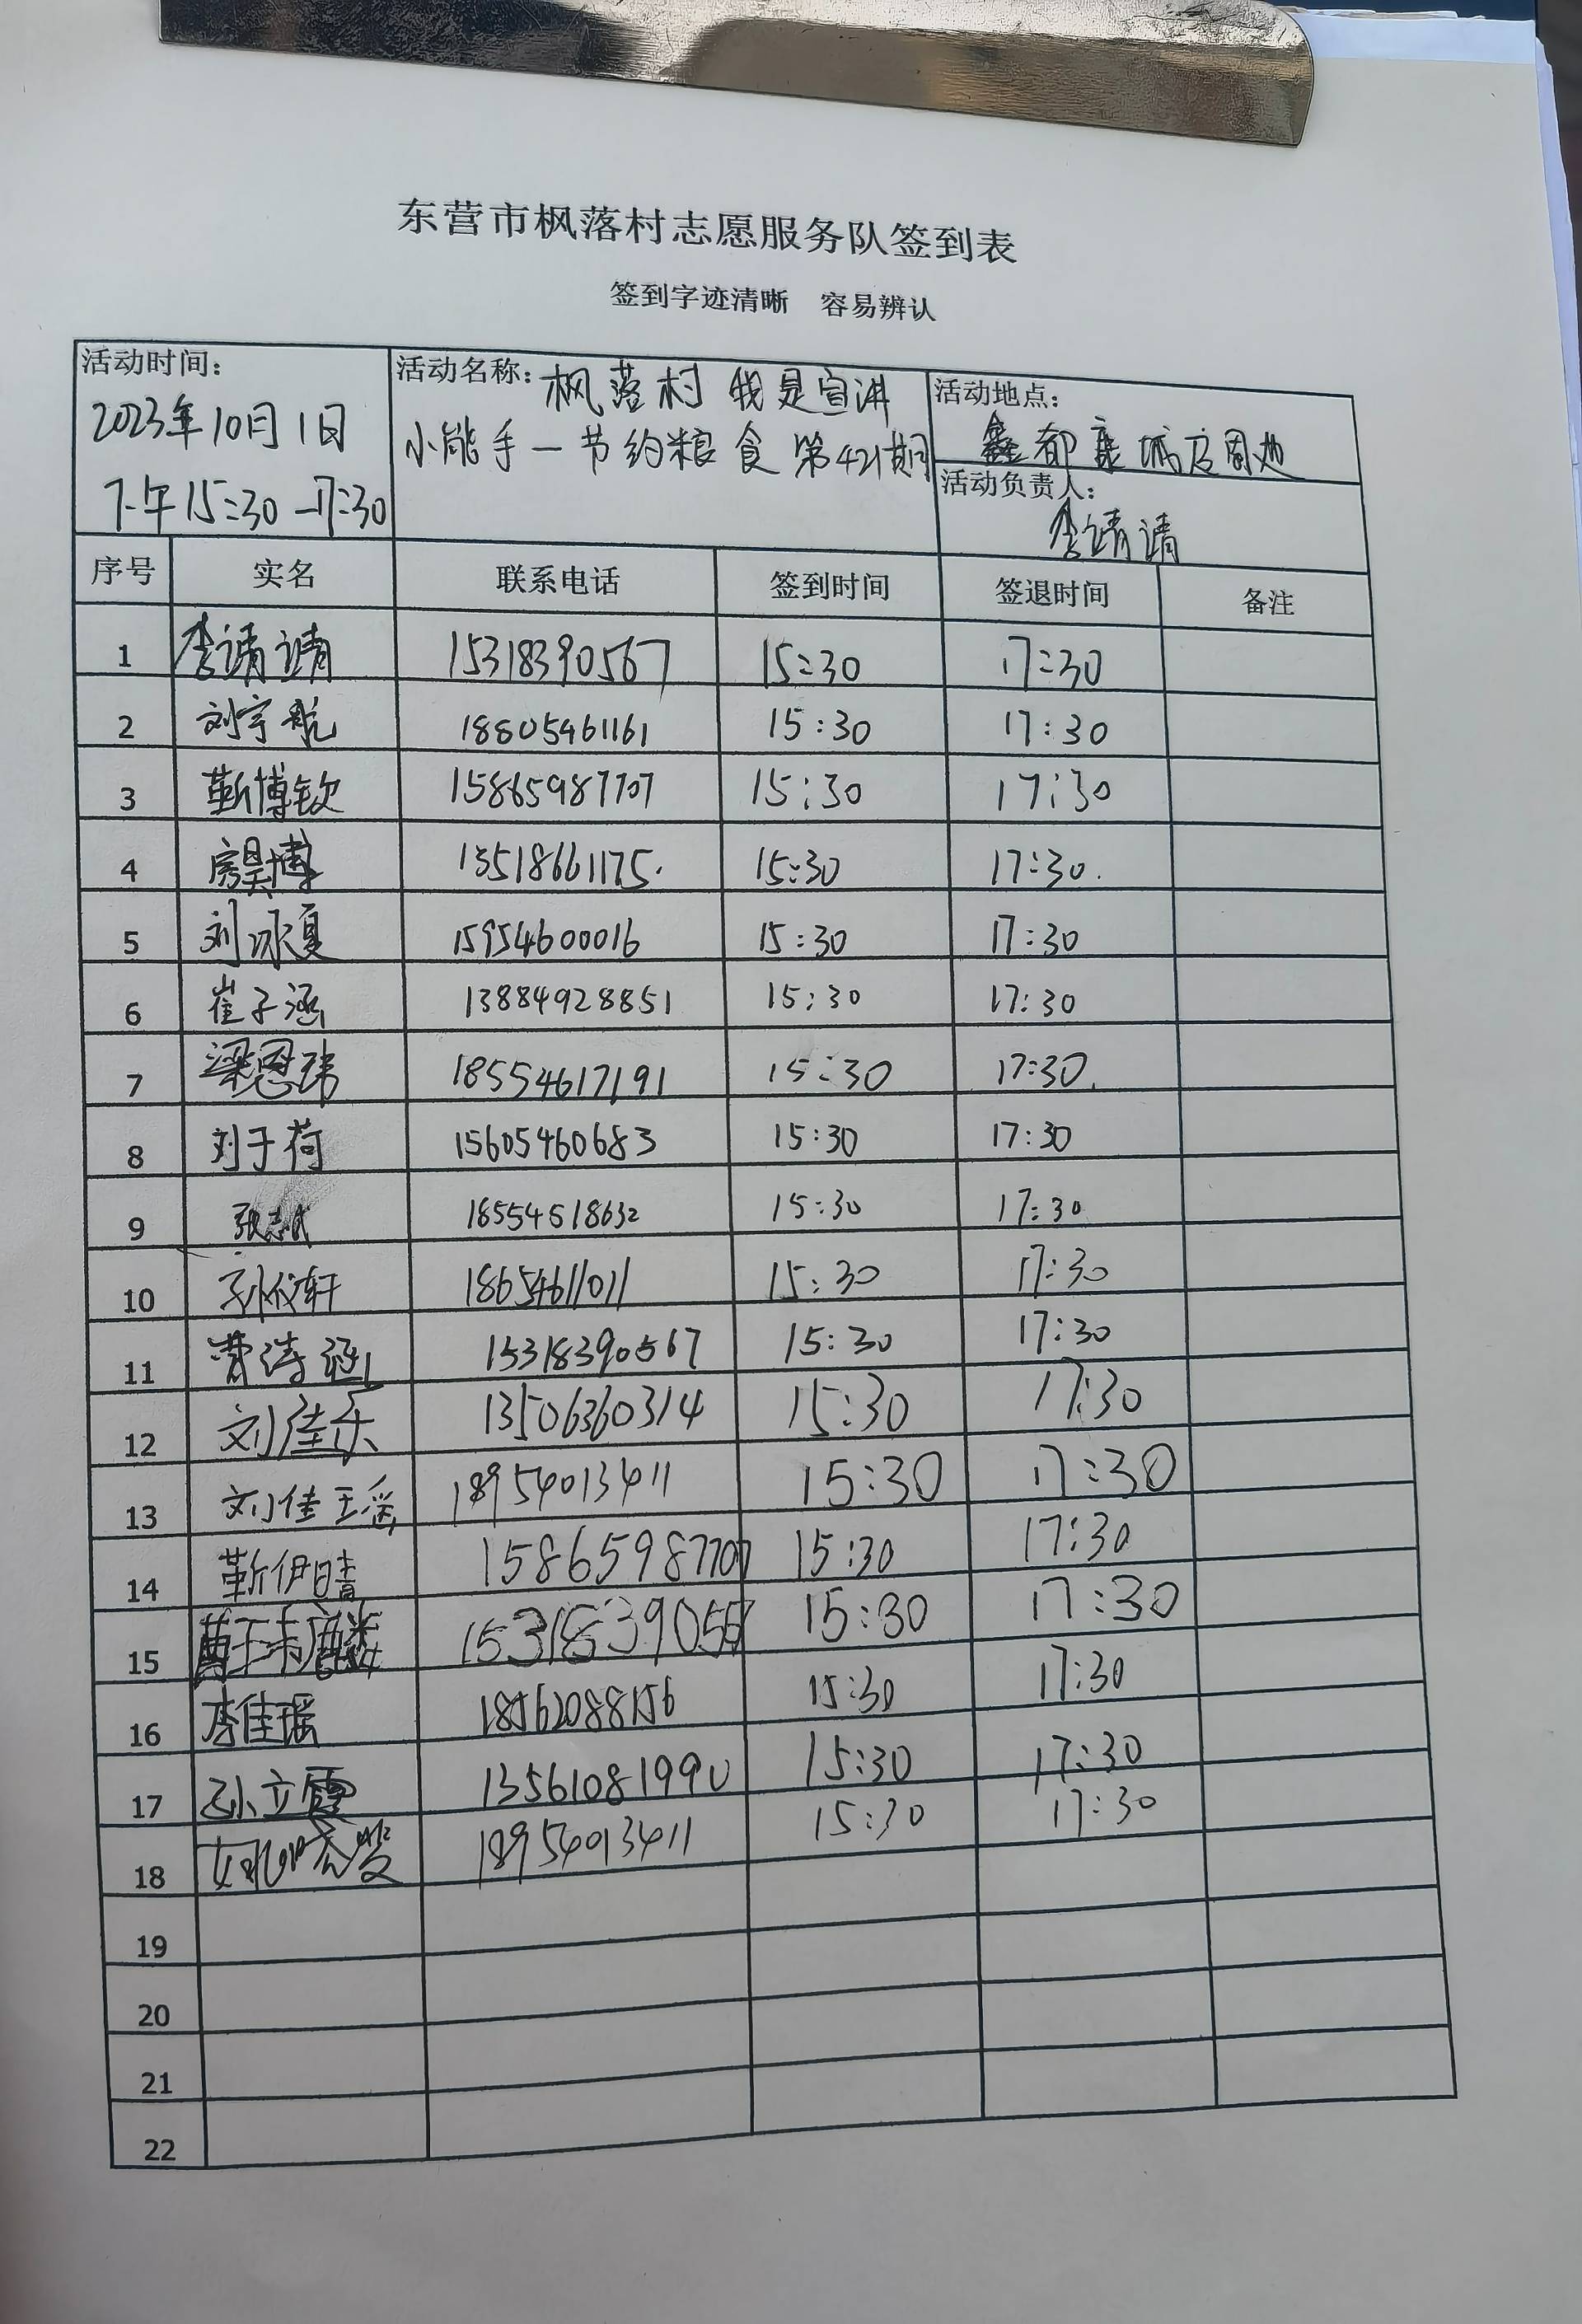 东营市枫落村志愿服务队签到表
签到字迹清晰 容易辨认
活动时间：
2023年10月1日
下午15:30-17:30
活动名称：枫落村 我是宣讲
小能手-节约粮食 第421期
活动地点：
鑫都康城及周边
活动负责人：
李靖靖
序号 实名 联系电话 签到时间 签退时间 备注
1 李靖靖 15318390567 15:30 17:30
2 刘宇航 18805461161 15:30 17:30
3 靳博钦 15865987707 15:30 17:30
4 房昊博 13518661175 15:30 17:30
5 刘冰夏 15954600016 15:30 17:30
6 崔子涵 13884928851 15:30 17:30
7 梁恩玮 18554617191 15:30 17:30
8 刘于荷 15605460683 15:30 17:30
9 18554518632 15:30 17:30
10 孙仪轩 18654611011 15:30 17:30
11 曹诗涵 15318390567 15:30 17:30
12 刘佳乐 13506360314 15:30 17:30
13 刘佳瑶 18954013411 15:30 17:30
14 靳伊晴 15865987707 15:30 17:30
15 15318390567 15:30 17:30
16 李佳瑶 18562088156 15:30 17:30
17 孙立霞 13561081990 15:30 17:30
18 18954013411 15:30 17:30
19
20
21
22